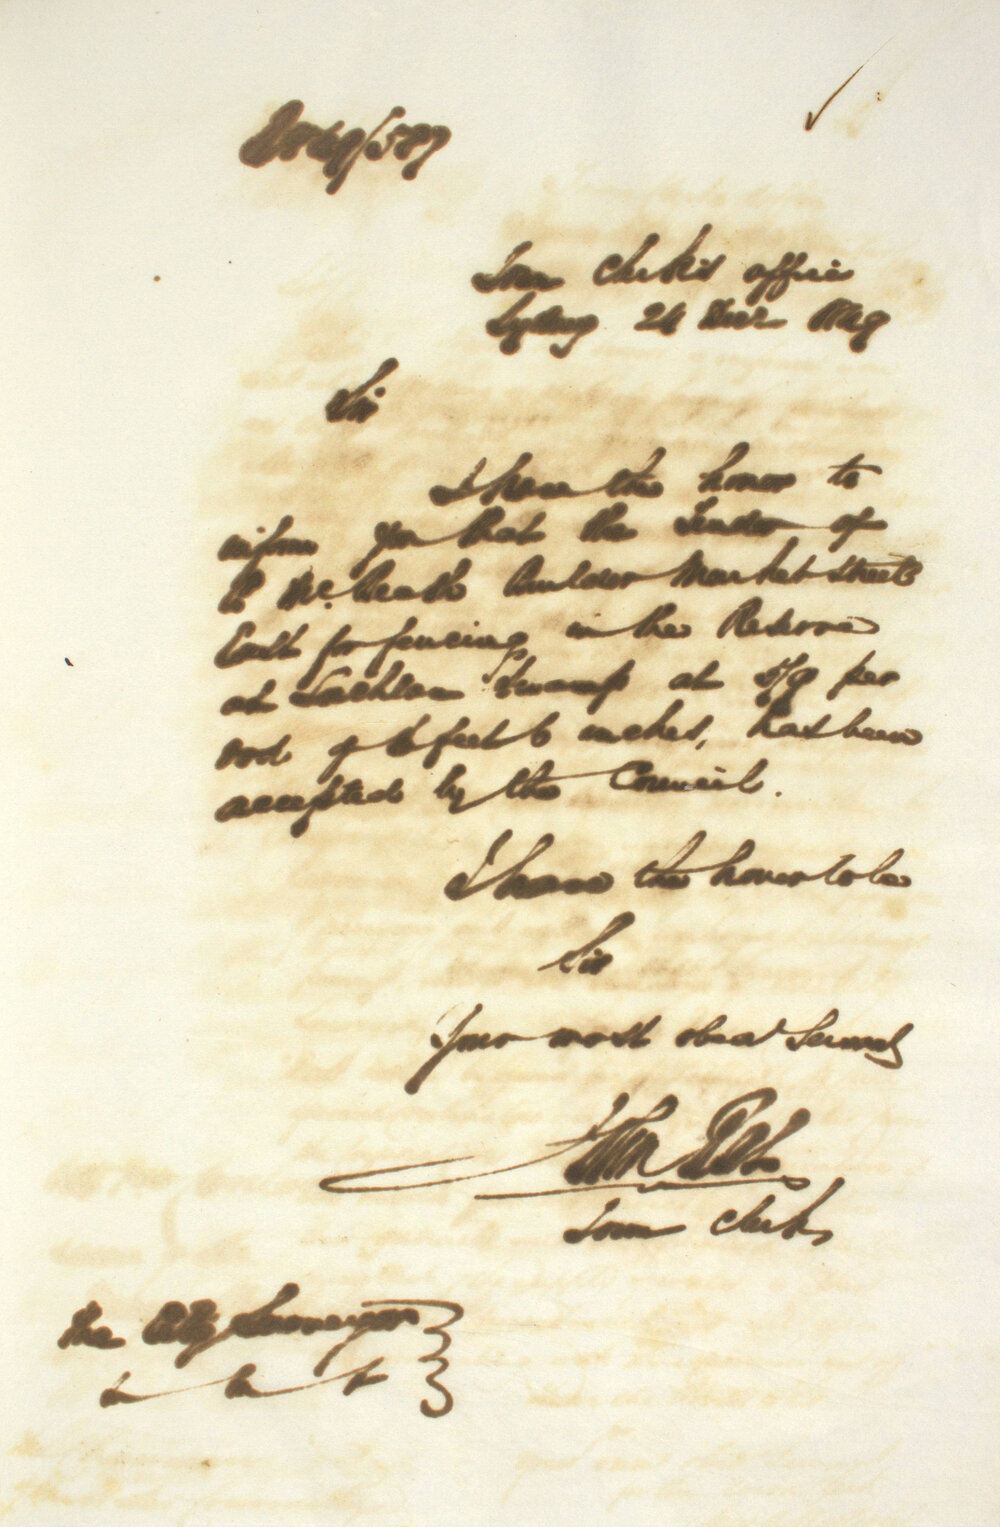 49/587
Town Clerk's Office
Sydney 24 Decr 1849
Sir
I have the honor to
inform you that the Tender of
McBeath Builder Market Street
East for fencing in the Reserve
at Lachlan Swamp at 5/9 per
rod of 16 feet 6 inches, has been
accepted by the Council.
I have the honor to be
Sir
Your most obed Servant
John Rae
Town Clerk
The City Surveyor